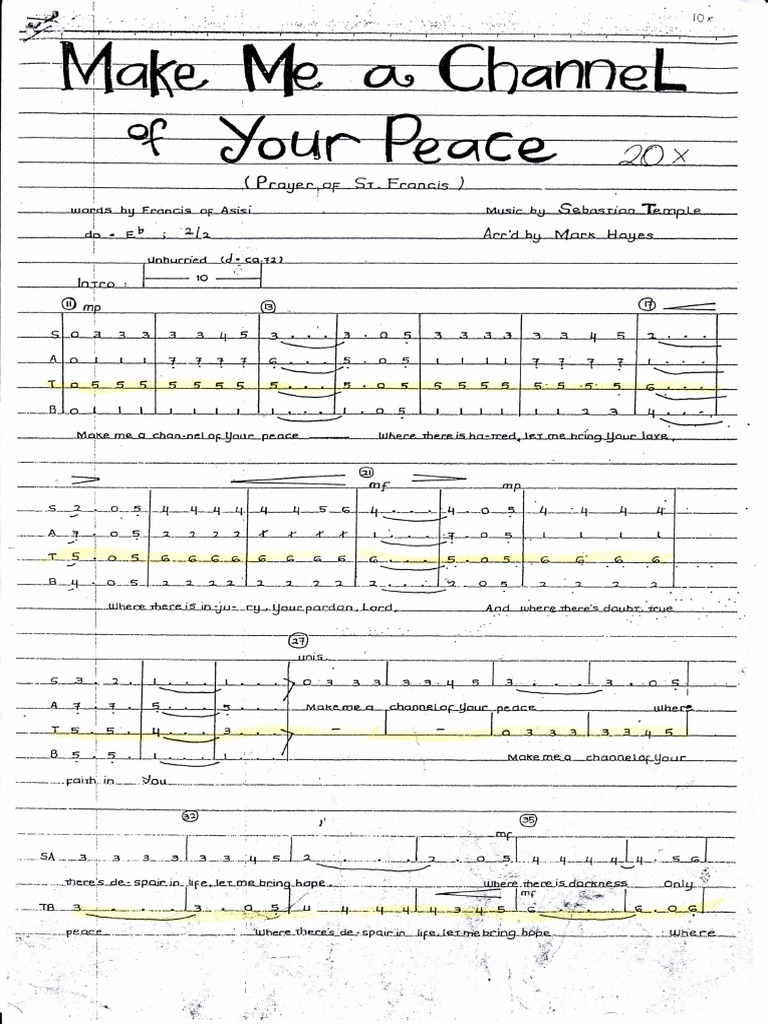 10 x
Make Me a Channel
of Your Peace 20 x
( Prayer of St. Francis )
words by Francis of Asisi Music by Sebastian Temple
do = Eb ; 2/2 Arr'd by Mark Hayes
Unhurried (d = ca.72)
Intro : 10
11 mp 13 17
S 0 3 3 3 3 3 4 5 3 . . . 3 . 0 5 3 3 3 3 3 3 4 5 2 . . .
A 0 1 1 1 7 7 7 7 6 . . . 5 . 0 5 1 1 1 1 7 7 7 7 1 . . .
T 0 5 5 5 5 5 5 5 5 . . . 5 . 0 5 5 5 5 5 5 5 5 5 6 . . .
B 0 1 1 1 1 1 1 1 1 . . . 1 . 0 5 1 1 1 1 1 1 2 3 4 . . .
Make me a chan-nel of Your peace Where there is ha-tred, let me bring Your love,
21
mf mp
S 2 . 0 5 4 4 4 4 4 4 5 6 4 . . . 4 . 0 5 4 4 4 4
A 7 . 0 5 2 2 2 2 1 . . . 7 . 0 5 1 1 1 1
T 5 . 0 5 6 6 6 6 6 6 6 6 6 . . . 5 . 0 5 6 6 6 6
B 4 . 0 5 2 2 2 2 2 2 2 2 2 . . . 2 . 0 5 2 2 2 2
Where there is in-ju-ry, Your pardon, Lord, And where there's doubt, true
27
unis.
S 3 . 2 . 1 . . . 1 . . 0 3 3 3 3 3 4 5 3 . . . 3 . 0 5
A 7 . 7 . 5 . . . 5 . . Make me a channel of Your peace where
T 5 . 5 . 4 . . . 3 . . - - 0 3 3 3 3 3 4 5
B 5 . 5 . 1 . . . 1 . . Make me a channel of Your
faith in You
32 35
mf
SA 3 3 3 3 3 3 4 5 2 . . . 2 . 0 5 4 4 4 4 4 . 5 6
there's de-spair in life, let me bring hope. Where there is darkness Only
mf
TB 3 . . . 3 . 0 5 4 4 4 4 4 3 4 5 6 . . . 6 . 0 6
peace Where there's de-spair in life, let me bring hope Where